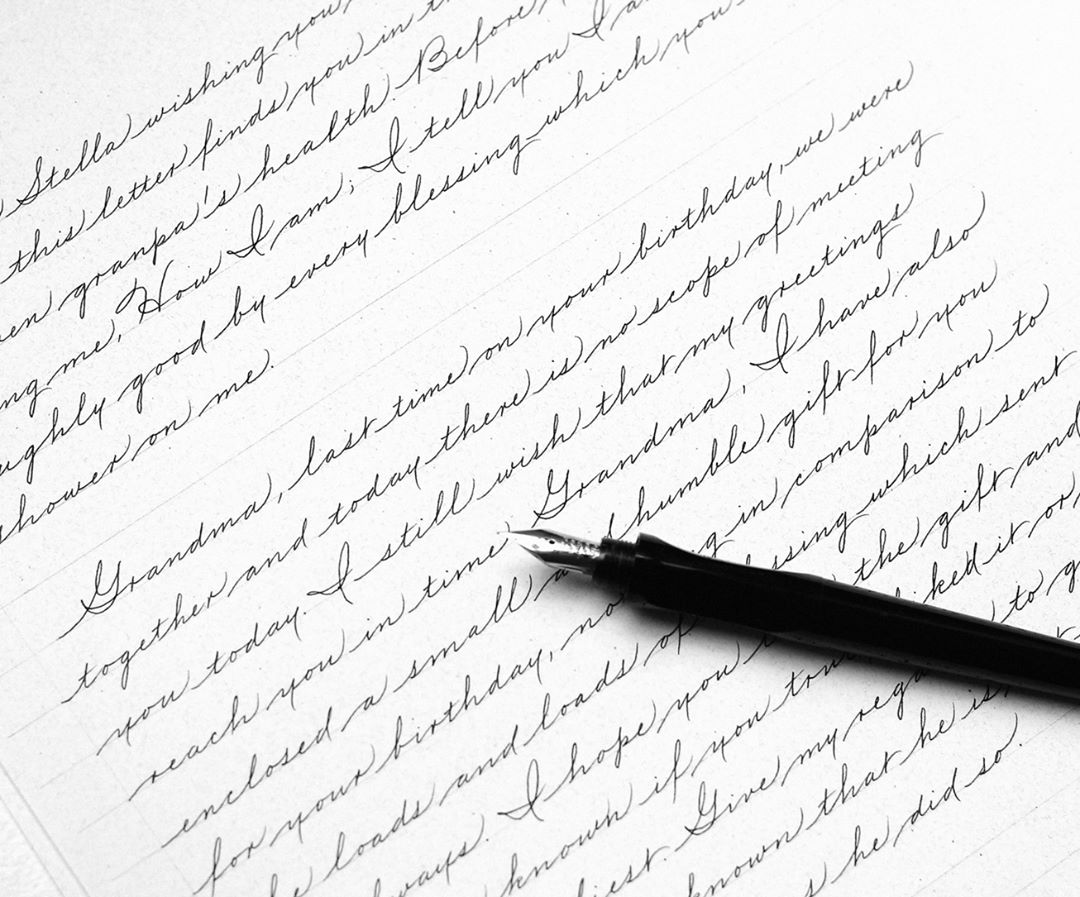 Stella wishing you
this letter finds you in
granpa's health. Before
me, How I am, I tell you I
good by every blessing which you
shower on me.
Grandma, last time on your birthday, we were
together and today there is no scope of meeting
you today. I still wish that my greetings
reach you in time Grandma, I have also
enclosed a small humble gift for you
for your birthday, in comparison to
loads and loads of which sent
I hope you the gift and
known if you it or
Give my to
known that he is
he did so.